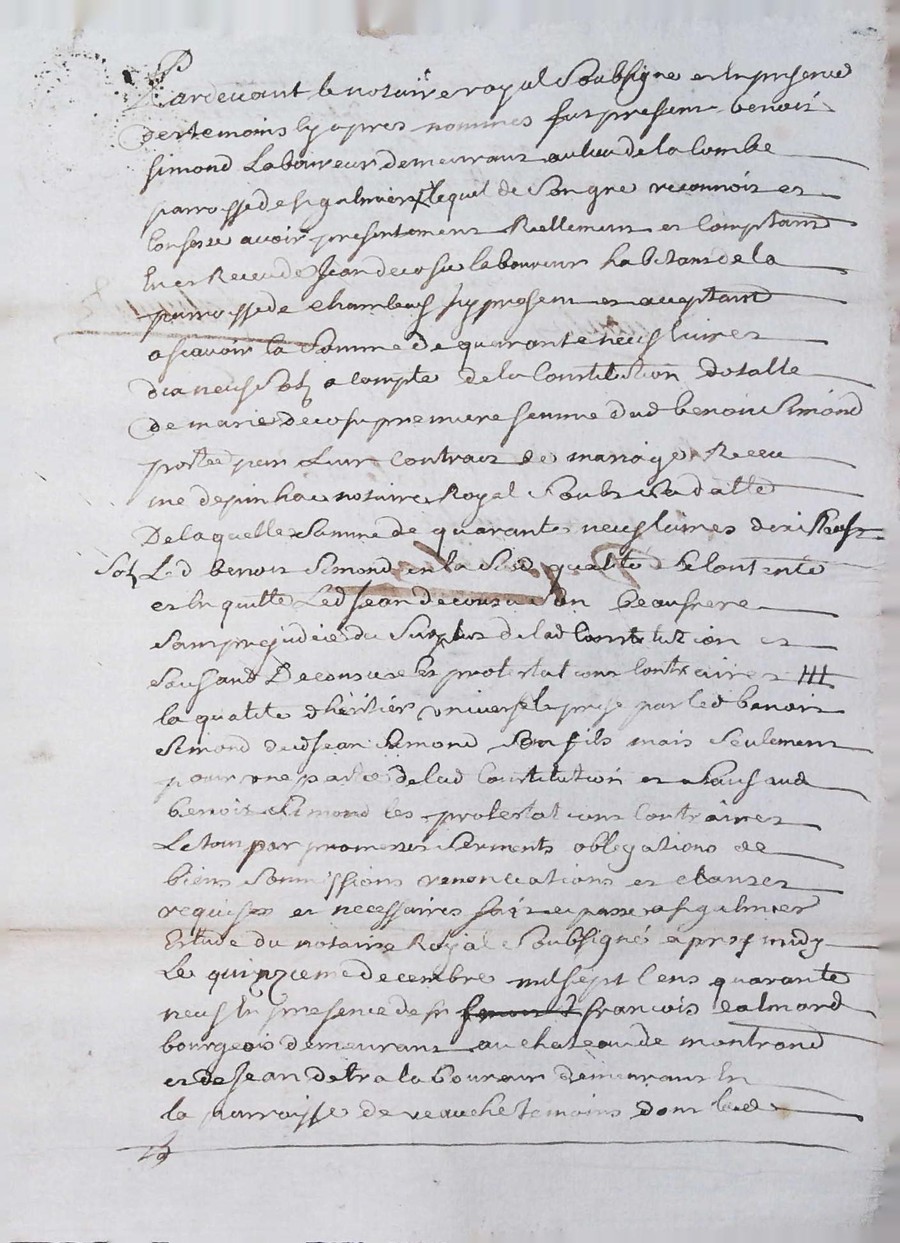 Pardevant le notaire royal soubsigne et en presence
des temoins cy apres nommes fut present benoit
simond Laboureur demeurant au lieu de la Combe
parroisse de st galmier lequel de son gre reconnoit et
Confesse avoir presentement Reellement et Comptant
Eu et Receu de Jean decosu laboureur habitant de la
parroisse de chambeuf cy present et acceptant
a scavoir la somme de quarante neuf livres
dix neuf sols a compte de la Constitution dotalle
de marie decosu premiere femme dud benoit Simond
portée par Leur Contract de mariage Receu
me depinhac notaire Royal soubs sa datte
De laquelle somme de quarante neuf livres dix neuf
sols Led benoit Simond en la sud qualité se Contente
et En quitte Led Jean decosu son beaufrere
sans prejudice du surplus de lad Constitution et
sauf aud Decosu ses protestations Contraires
la qualité d'héritier universel prise par led benoit
Simond dud Jean Simond son fils mais seulement
pour une partie de lad Constitution et sauf aud
benoit Simond les protestations Contraires
Le tout par promesses serments obligations de
biens soumissions renonciations et clauses
requises et necessaires fait et passe a st galmier
Etude du notaire Royal soubsigné apres midy
Le quinzieme decembre mil sept Cens quarante
neuf En presence de sr françois
bourgeois demeurant au chateau de montrond
et de Jean detra laboureur demeurant En
la parroisse de veauche temoins dont led